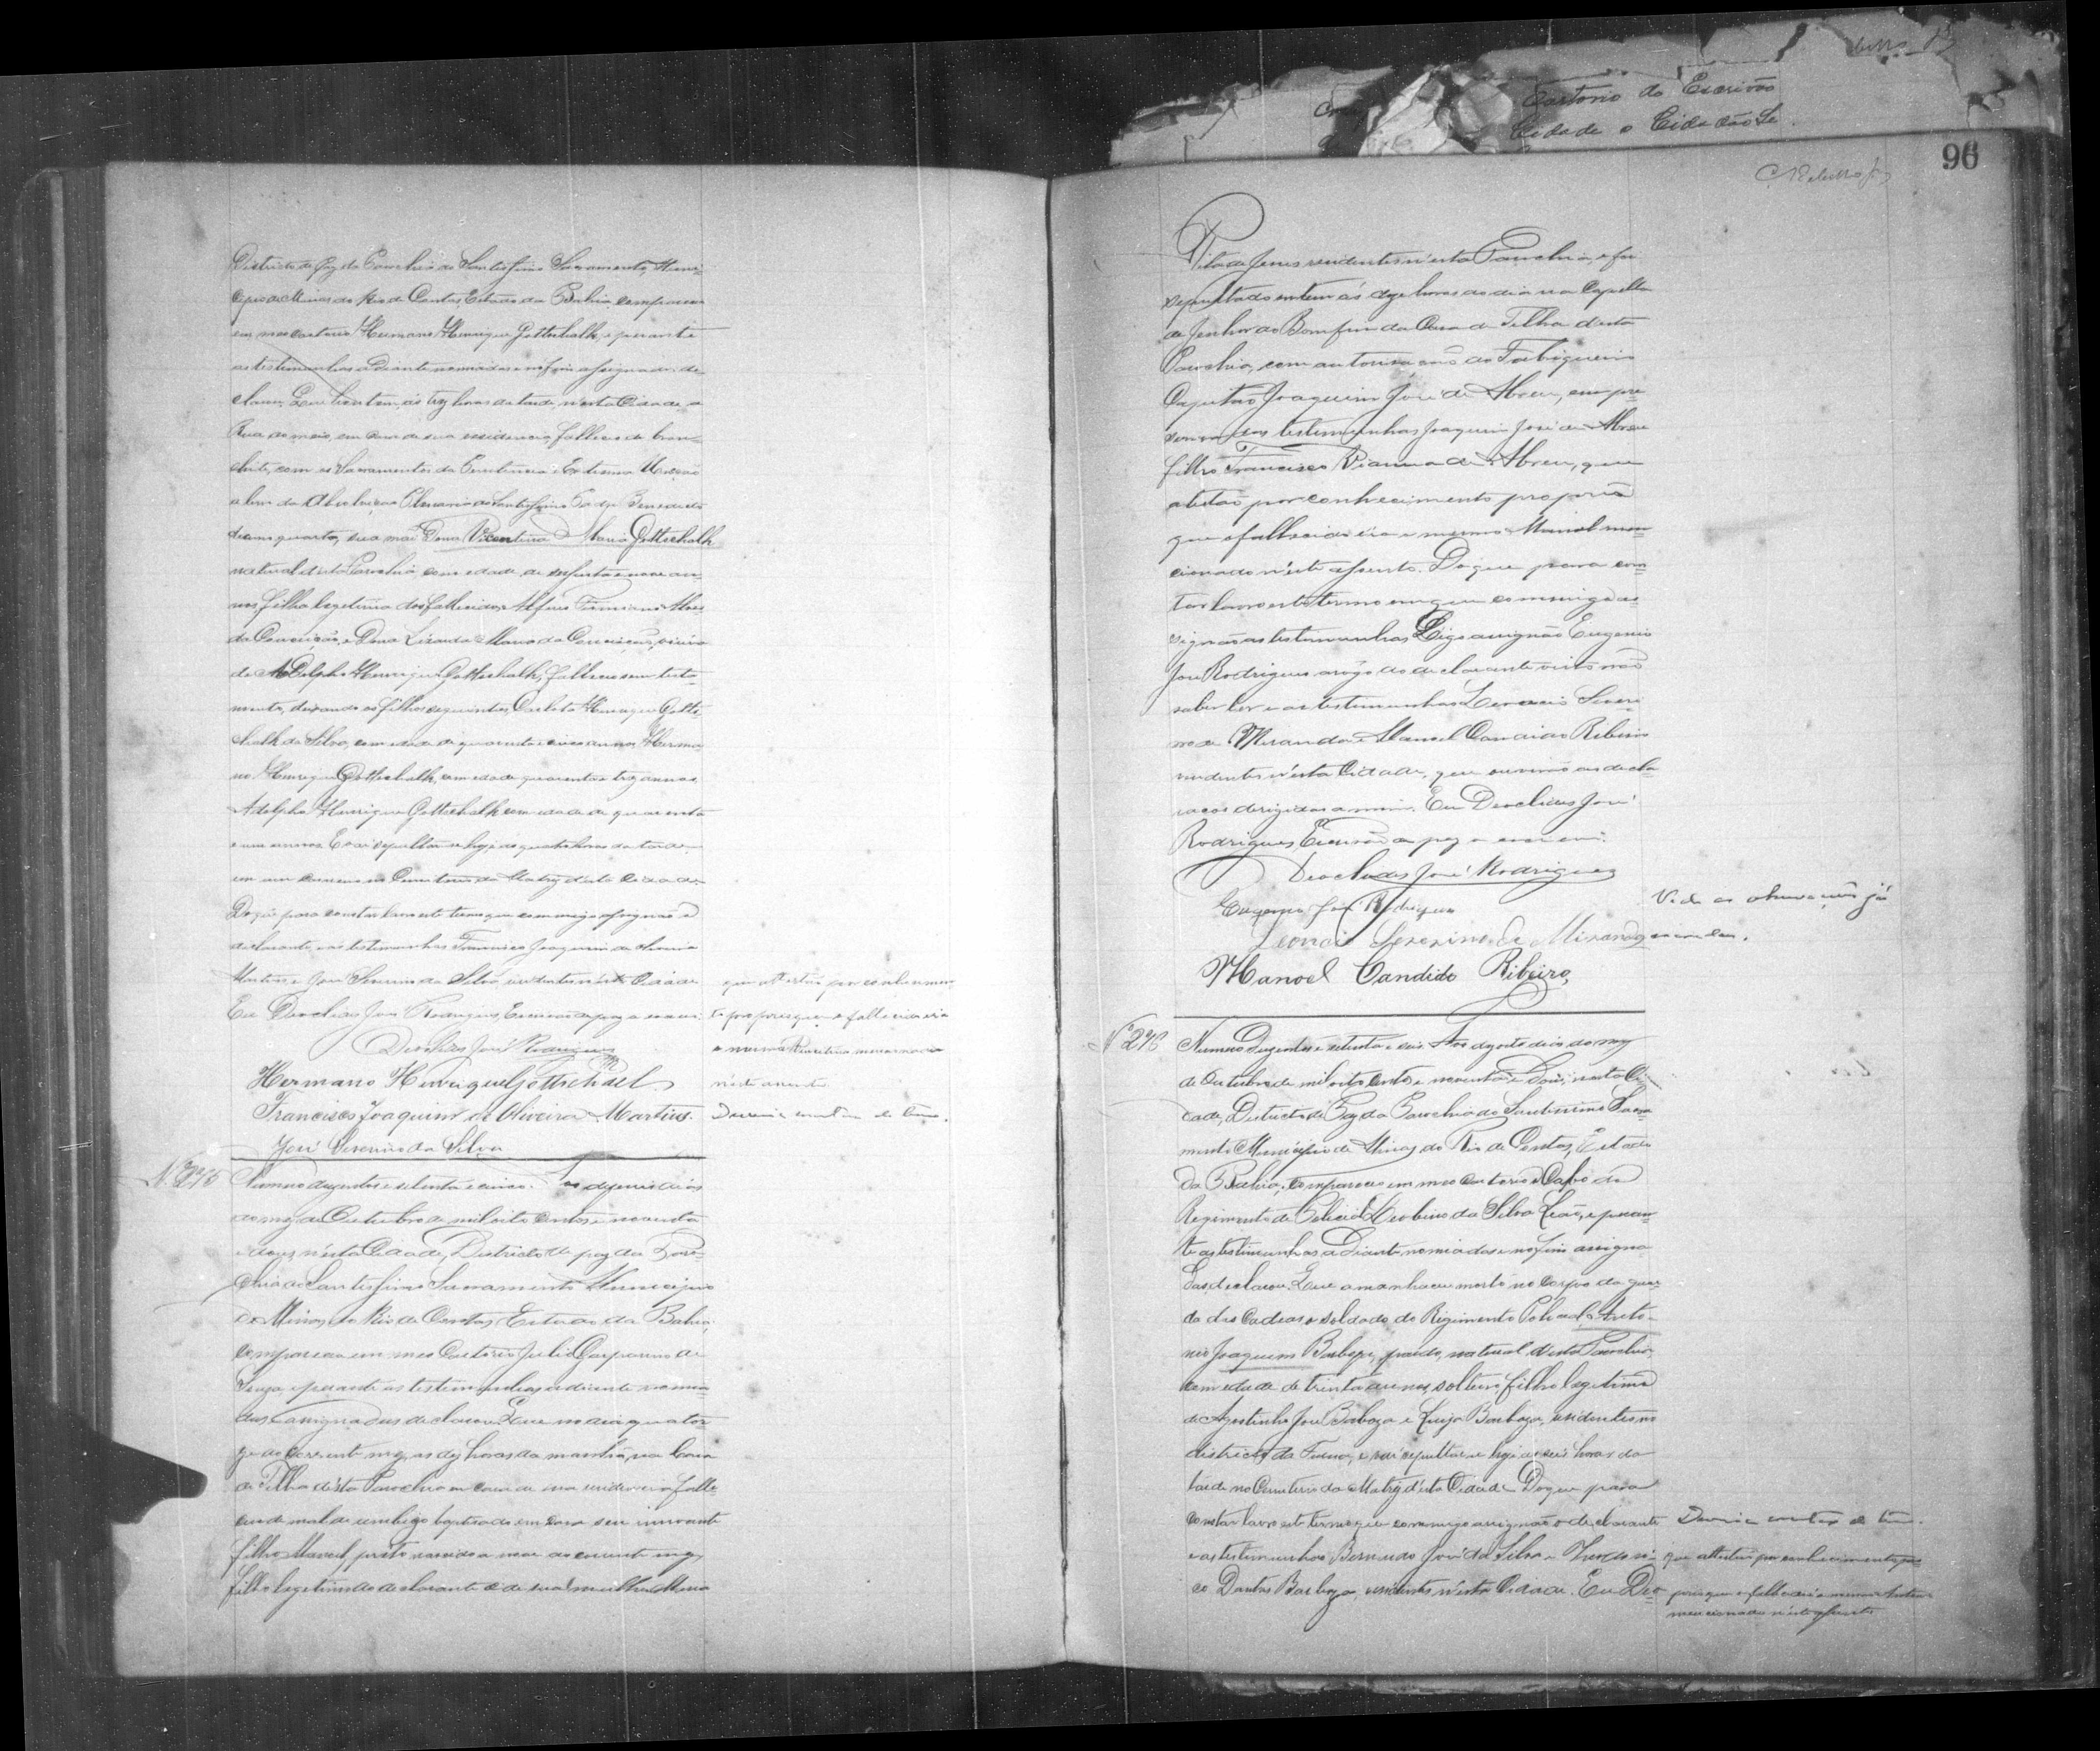 Districto de Paz da Parochia do Santissimo Sacramento, Muni-
cipio de Minas do Rio de Contas, Estado da Bahia, compareceu
em meo cartorio Hermano Henrique Gottschalk, e perante
as testemunhas adiante nomiadas e no fim assignadas de-
clarou: Que hontem, ás trez horas da tarde, n'esta Cidade, a
Rua do meio, em casa de sua residencia falleceu de bron-
chite, com os Sacramentos da Penitencia e Extrema Uncção
alem da Absolvição
sua mãi Dona Vicentina Maria Gottschalk
natural d'esta Parochia com edade de sessenta e nove an-
nos, filha legitima dos fallecidos Alferes Firmiano Alves
da Conceição, e Dona Maria da Conceição, viuva
de Adolpho Henrique Gottschalk, falleceu sem testa-
mento, deixando os filhos seguintes, Carlota Henrique Gotts-
chalk da Silva, com edade de quarenta e cinco annos, Herma-
no Henrique Gottschalk, com edade quarenta e trez annos,
Adolpho Henrique Gottschalk com edade de quarenta
e um annos. E vai sepultar-se hoje as quatro horas da tarde
em um no Cemiterio da Matriz d'esta Cidade.
Do que para constar lavro este termo que commigo assignão o
declarante, e as testemunhas Francisco Joaquim de Oliveira
Martins e José Severino da Silva residentes n'esta Cidade
Eu Deoclides José Rodrigues, Escrivão de paz o escrevi.
que attestão por conhecimen-
to proprio que a fallecida era
a mesma Vicentina mencionada
n'este assento
Deoclides José Rodrigues
Hermano Henrique Gottschalk
Francisco Joaquim de Oliveira Martins.
José Severino da Silva
Nº 275
Numero duzentos e setenta e cinco. Aos dezesseis dias
do mez de Outubro de mil oito centos e noventa
e dous n'esta Cidade, Districto de paz da Paro-
chia do Santissimo Sacramento Municipio
de Minas do Rio de Contas, Estado da Bahia,
compareceu em meo Cartorio Julio Gasparino de
Souza, e perante as testemunhas adiante nomia-
das e assignadas declarou: Que no dia quator-
ze do corrente mez, as dez horas da manhã, na Casa
de Telha d'esta Parochia em casa de sua residencia falle-
ceu de mal de umbigo baptisado em casa seu innocente
filho Manoel, preto nascido a nove do corrente mez,
filho legitimo do declarante e de sua mulher Maria
96
Cartorio do Escrivão
Cidade o Cidadão
Rita de Jesus residentes n'esta Parochia, e foi
sepultado ontem ás doze horas do dia na Capella
do Senhor do Bomfim da Casa de Telha d'esta
Parochia, com autorisação do Fabriqueiro
Capitão Joaquim José de Abreu, em pre-
sença das testemunhas Joaquim José de Abreu
filho Francisco Vianna de Abreu, que
atestão por conhecimento proprio
que o fallecido era o mesmo Manoel men-
cionado n'este assento. Do que para cons-
tar lavro este termo em que commigo as-
signão as testemunhas Digo assignão Eugenio
José Rodrigues a rogo do declarante visto não
saber ler e as testemunhas Leoncio Severi-
no de Miranda e Manoel Candido Ribeiro
residentes n'esta Cidade, que ouvirão as decla-
rações dirigidas a mim. Eu Deoclides José
Rodrigues, Escrivão de paz o escrevi.
Deoclides José Rodrigues
Eugenio José Rodrigues
Leoncio Severino de Miranda
Manoel Candido Ribeiro,
Vide as observações já
Nº 276
Numero Duzentos e setenta e seis. Aos dezoito dias do mez
de Outubro de mil oito centos e noventa e Dous, n'esta Ci-
dade, Districto de Paz da Parochia do Santissimo Sacra-
mento Municipio de Minas do Rio de Contas, Estado
da Bahia, compareceu em meo Cartorio o Cabo do
Regimento de Policia da Silva Leão, e peran-
te as testemunhas adiante nomiadas e no fim assigna-
das, declarou: Que amanheceu morto no Corpo da guar-
da das Cadeias o soldado do Regimento Policial, Anto-
nio Joaquim Barboza, pardo, natural d'esta Parochia,
com edade de trinta annos, solteiro filho legitimo
de Agostinho José Barboza e Luiza Barboza, residentes no
districto da Furna, e vai sepultar-se hoje as seis horas da
tarde no Cemiterio da Matriz d'esta Cidade. Do que para
constar lavro este termo que commigo assignão o declarante
e as testemunhas Bernardo José da Silva e
Dantas Barboza, residentes n'esta Cidade. Eu Deo-
que attestão por conhecimento pro-
prio que o fallecido é o mesmo Antonio
mencionado n'este assento